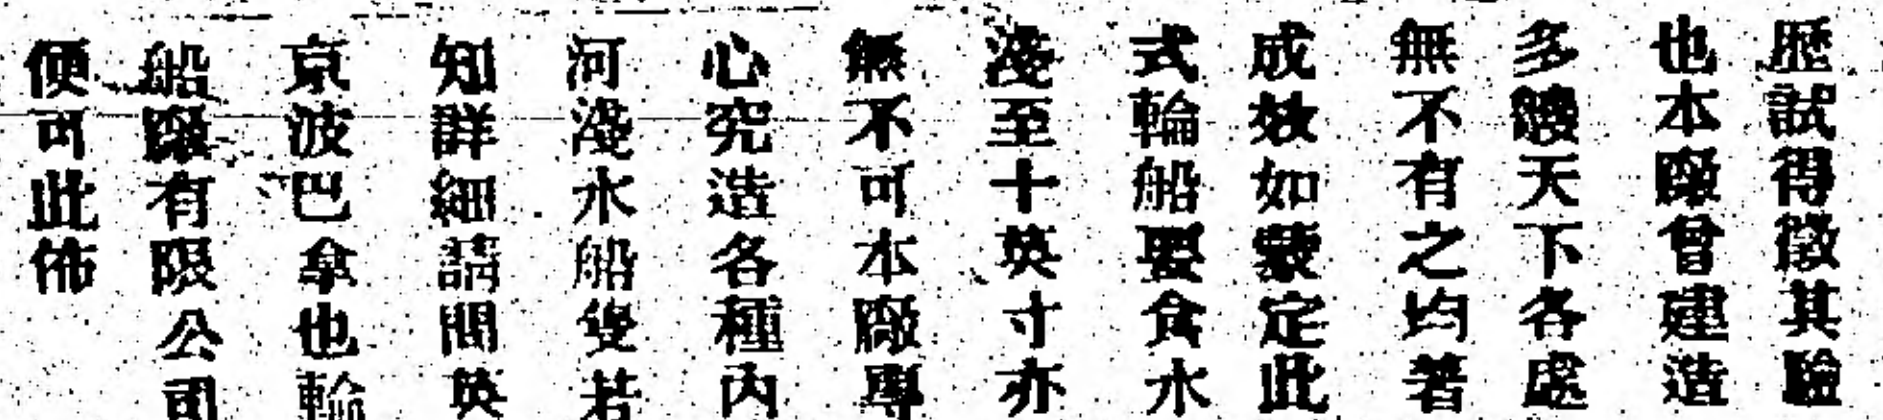 歷試得徵其驗
也本廠曾建造
多艘天下各處
無不有之均著
成效如蒙定此
式輪船要食水
淺至十英寸亦
無不可本廠專
心究造各種內
河淺水船隻若
知詳細請問英
京波巴拿也輪
船廠有限公司
便可此佈